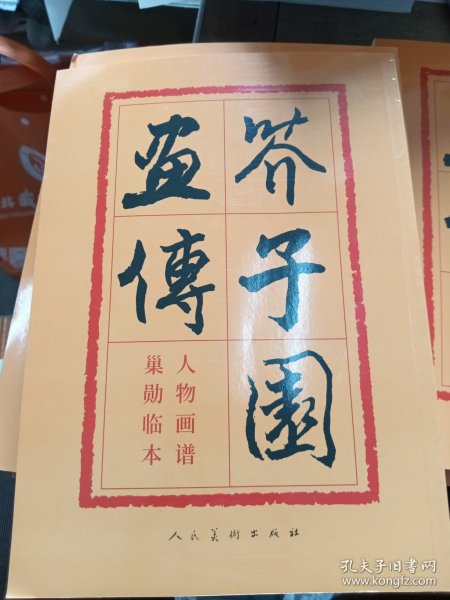 芥子園
畫傳
人物画谱
巢勋临本
人民美術出版社
孔夫子旧书网
www.kongfz.com